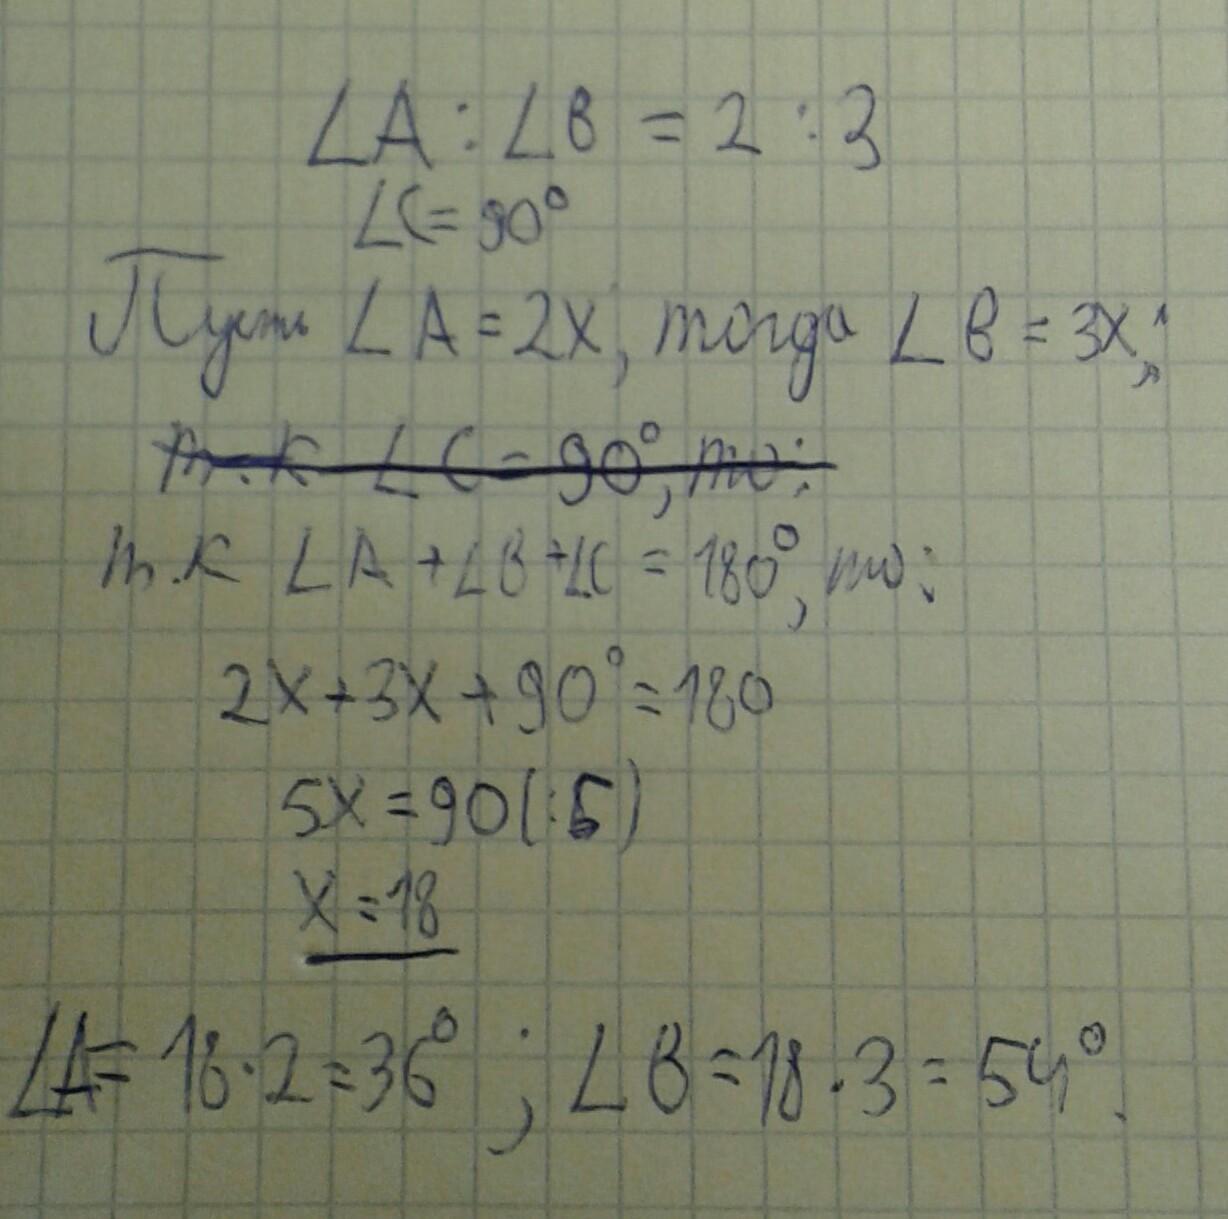 ∠A : ∠B = 2 : 3
∠C = 90°
Пусть ∠A = 2x, тогда ∠B = 3x;
т.к ∠C = 90°, то:
т.к ∠A + ∠B + ∠C = 180°, то:
2x + 3x + 90° = 180
5x = 90 (:5)
x = 18
∠A = 18 · 2 = 36° ; ∠B = 18 · 3 = 54°.